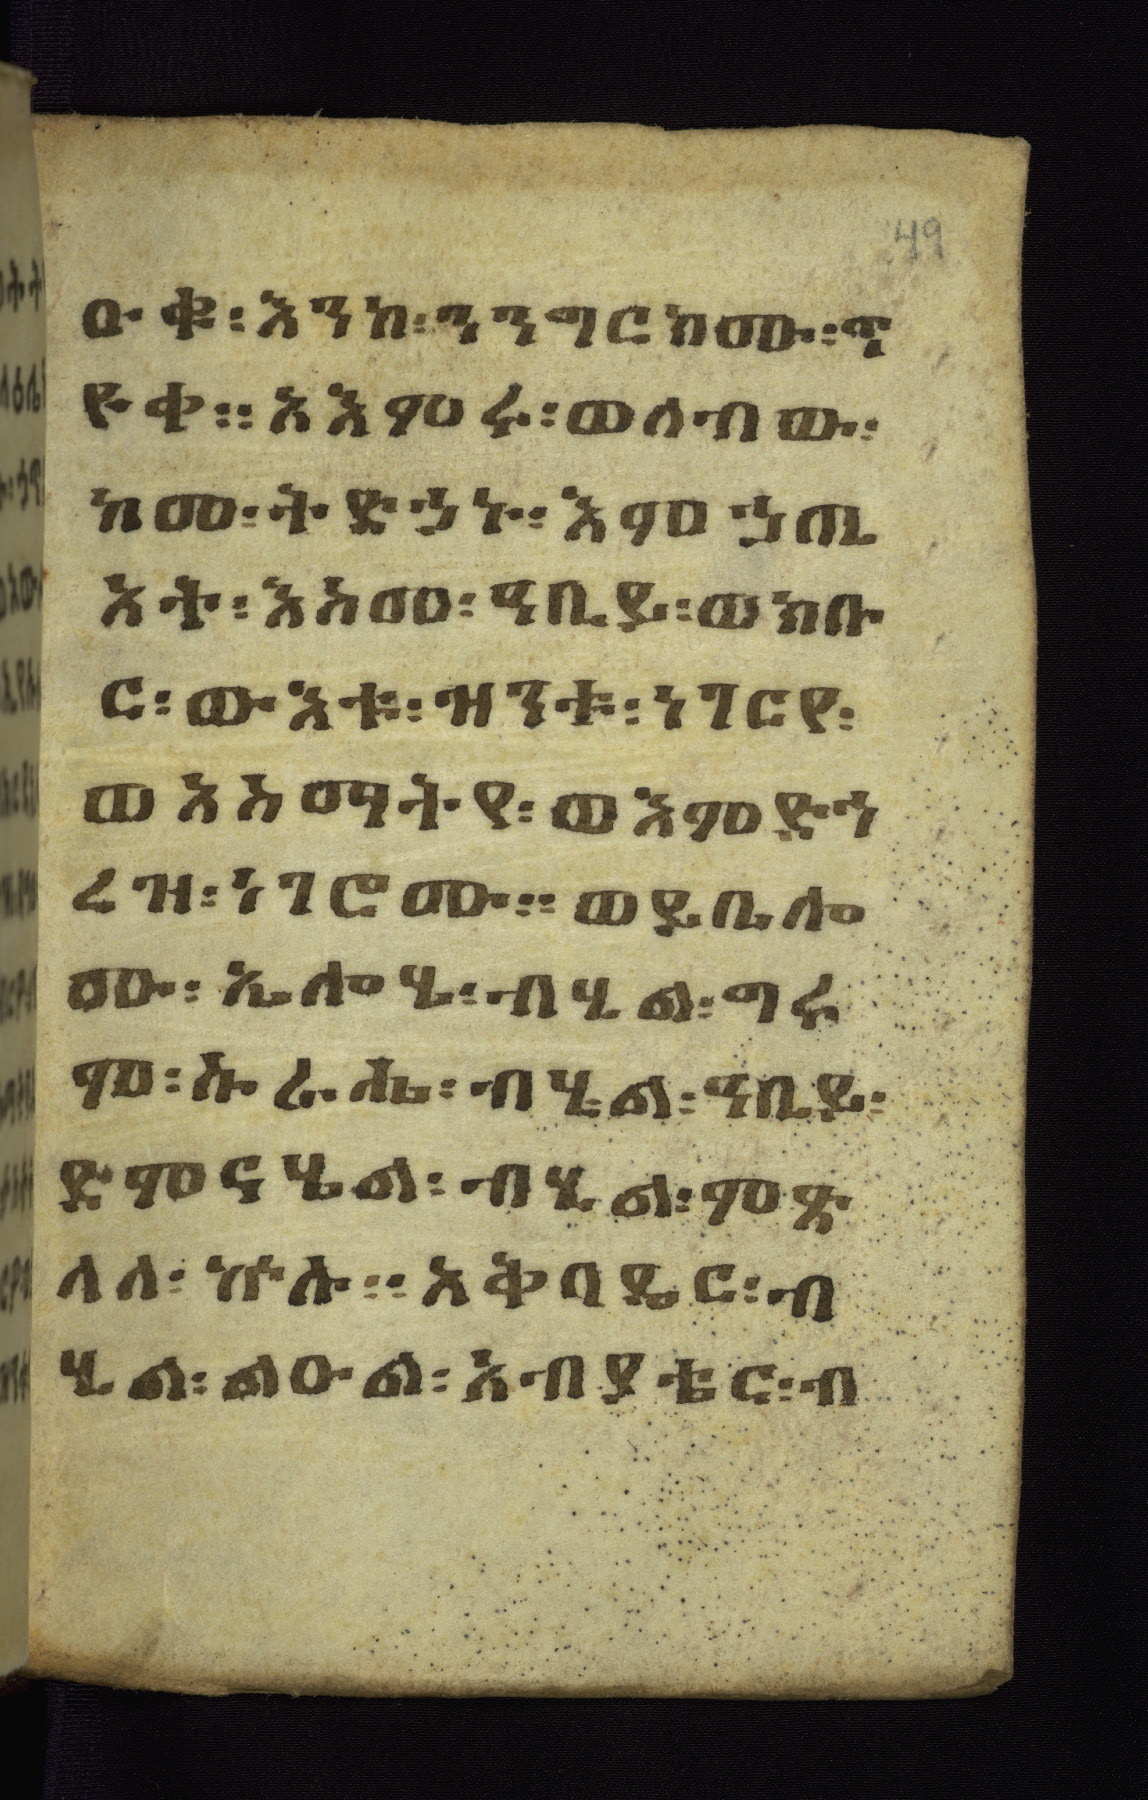 49
ዑቁ፡እንከ፡ንንግርክሙ፡ጥ
ዮቀ። አእምሩ፡ወለብው፡
ከመ፡ትድኃኑ፡እምኃጢ
አት፡እስመ፡ዓቢይ፡ወክቡ
ር፡ውእቱ፡ዝንቱ፡ነገርየ፡
ወአስማትየ፡ወእምድኅ
ረዝ፡ነገሮሙ። ወይቤሎ
ሙ፡ ኤሎሄ፡ብሂል፡ግሩ
ም፡ኡራሔ፡ብሂል፡ዓቢይ፡
ድምናሄል፡ብሂል፡ምጽ
ላለ፡ኵሉ። አቅባዴር፡ብ
ሂል፡ልዑል፡አብያቴር፡ብ